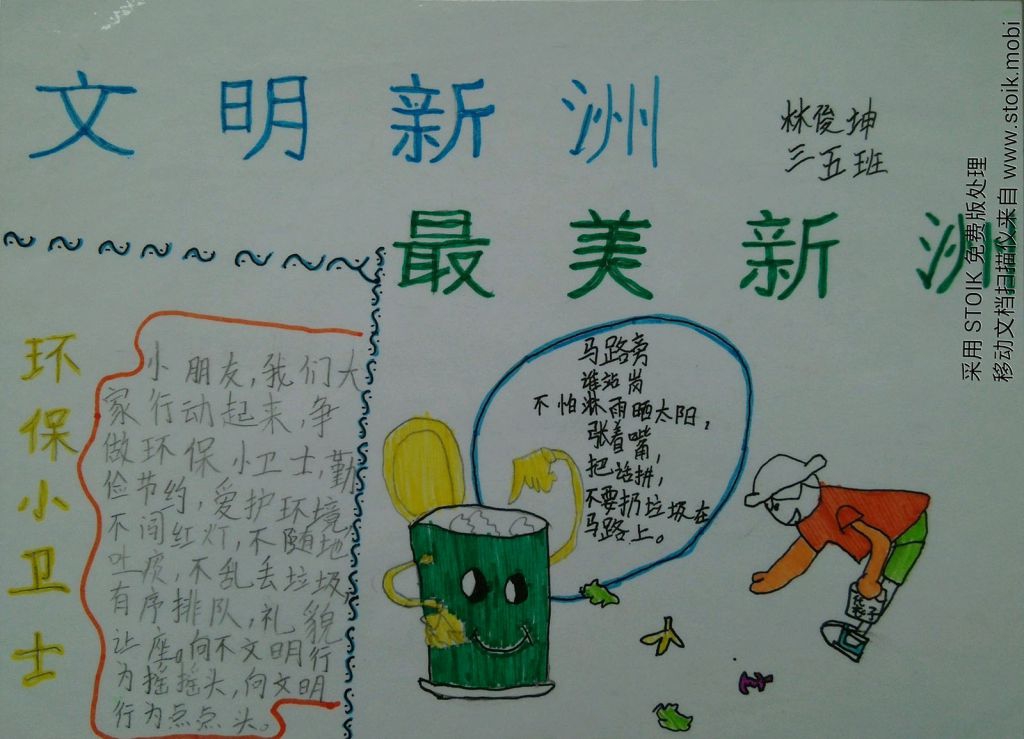 文明新洲
林俊坤
三五班
最美新洲
环保小卫士
小朋友，我们大
家行动起来，争
做环保小卫士，勤
俭节约，爱护环境，
不闯红灯，不随地
吐痰，不乱丢垃圾，
有序排队，礼貌
让座。向不文明行
为摇摇头，向文明
行为点点头。
马路旁
谁站岗
不怕淋雨晒太阳，
张着嘴，
把话讲，
不要扔垃圾在
马路上。
采用 STOIK 免费版处理
移动文档扫描仪来自 www.stoik.mobi